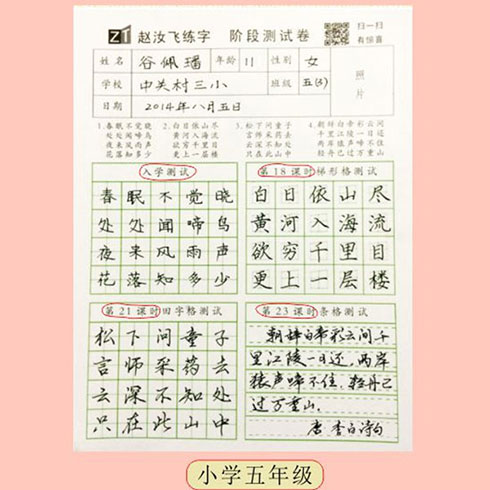 Z1 赵汝飞练字 阶段测试卷 扫一扫
有惊喜
姓名 谷佩璠 年龄 11 性别 女 照片
学校 中关村三小 班级 五(3)
日期 2014年八月五日
1.春眠不觉晓 2.白日依山尽 松下问童子 4.朝辞白帝彩云间
处处闻啼鸟 黄河入海流 言师采药去 千里江陵一日还
夜来风雨声 欲穷千里目 云深不知处 两岸猿声啼不住
花落知多少 更上一层楼 只在此山中 轻舟已过万重山
入学测试 第18课时梯形格测试
春眠不觉晓 白日依山尽
处处闻啼鸟 黄河入海流
夜来风雨声 欲穷千里目
花落知多少 更上一层楼
第21课时田字格测试 第23课时条格测试
松下问童子 朝辞白帝彩云间千
言师采药去 里江陵一日还,两岸
云深不知处 猿声啼不住,轻舟已
只在此山中 过万重山.
唐 李白诗句
小学五年级